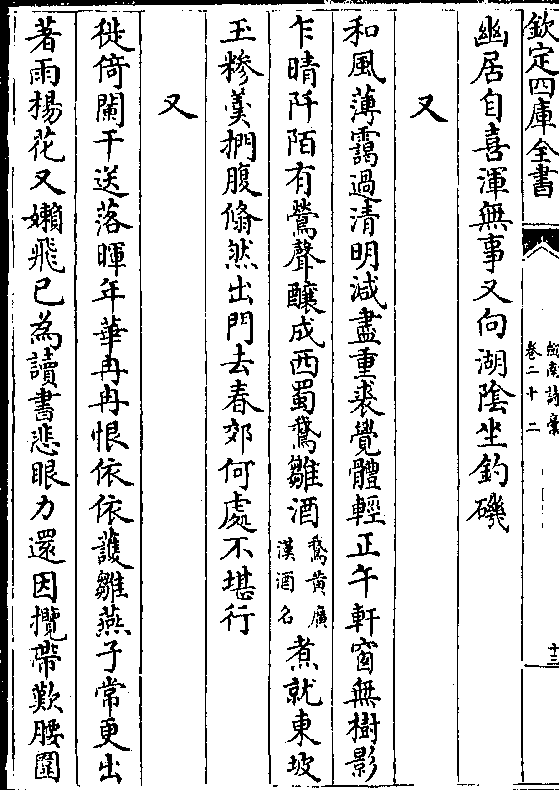 欽定四庫全書
劍南詩稾
卷二十二
十三
幽居自喜渾無事又向湖陰坐釣磯
又
和風薄靄過清明減盡重裘覺體輕正午軒窗無樹影
乍晴阡陌有鶯聲釀成西蜀鵞雛酒鵞黃廣漢酒名煮就東坡
玉糝羮捫腹翛然出門去春郊何處不堪行
又
徙倚闌干送落暉年華冉冉恨依依護雛燕子常更出
著雨楊花又嬾飛已為讀書悲眼力還因攬帶歎腰圍